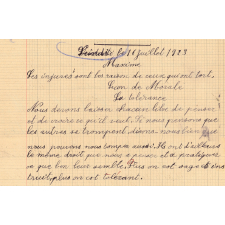 Vendredi le 16 juillet 1923
Maxime
Les injures sont les raisons de ceux qui ont tort.
Leçon de Morale
La tolérance
Nous devons laisser chacun libre de penser
et de croire ce qu'il veut. Si nous pensons que
les autres se trompent disons-nous bien que
nous pouvons nous tromper aussi. Ils ont d'ailleurs
le même droit que nous à penser et à pratiquer
ce que bon leur semble. Plus on est sage et
instruit plus on est tolérant.